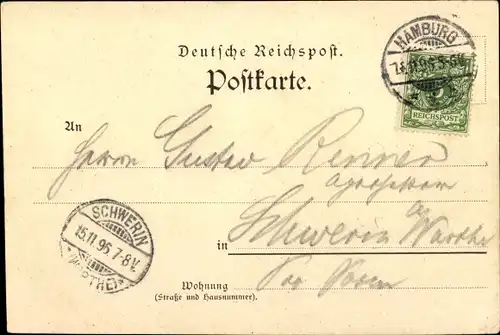 Deutsche Reichspost.
Postkarte.
HAMBURG
14.11.96 3-8 V.
5
REICHSPOST
An
Herrn Gustav Renner
Apotheker
in Schwerin a/ Warthe
Prov Posen
SCHWERIN
15.11.96 7-8 V.
(WARTHE)
Wohnung
(Straße und Hausnummer).